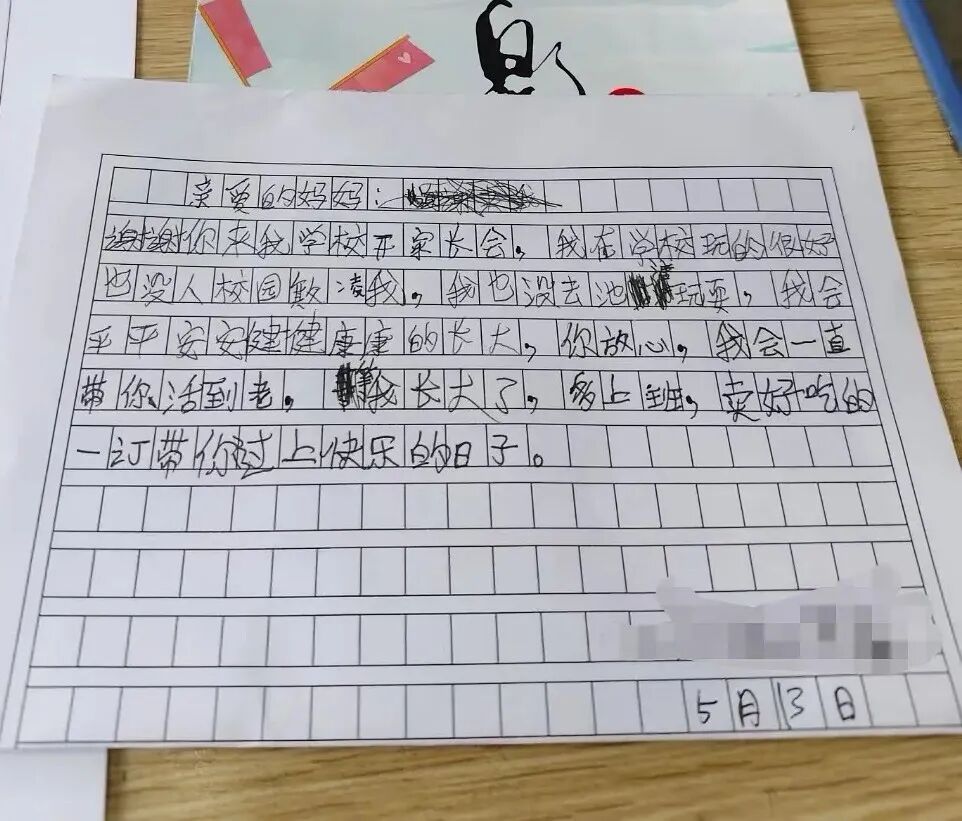 亲爱的妈妈：
谢谢你来我学校开家长会，我在学校玩的很好
也没人校园欺凌我，我也没去池玩耍，我会
平平安安健健康康的长大，你放心，我会一直
带你活到老，我长大了，多上班，卖好吃的
一订带你过上快乐的日子。
5月13日